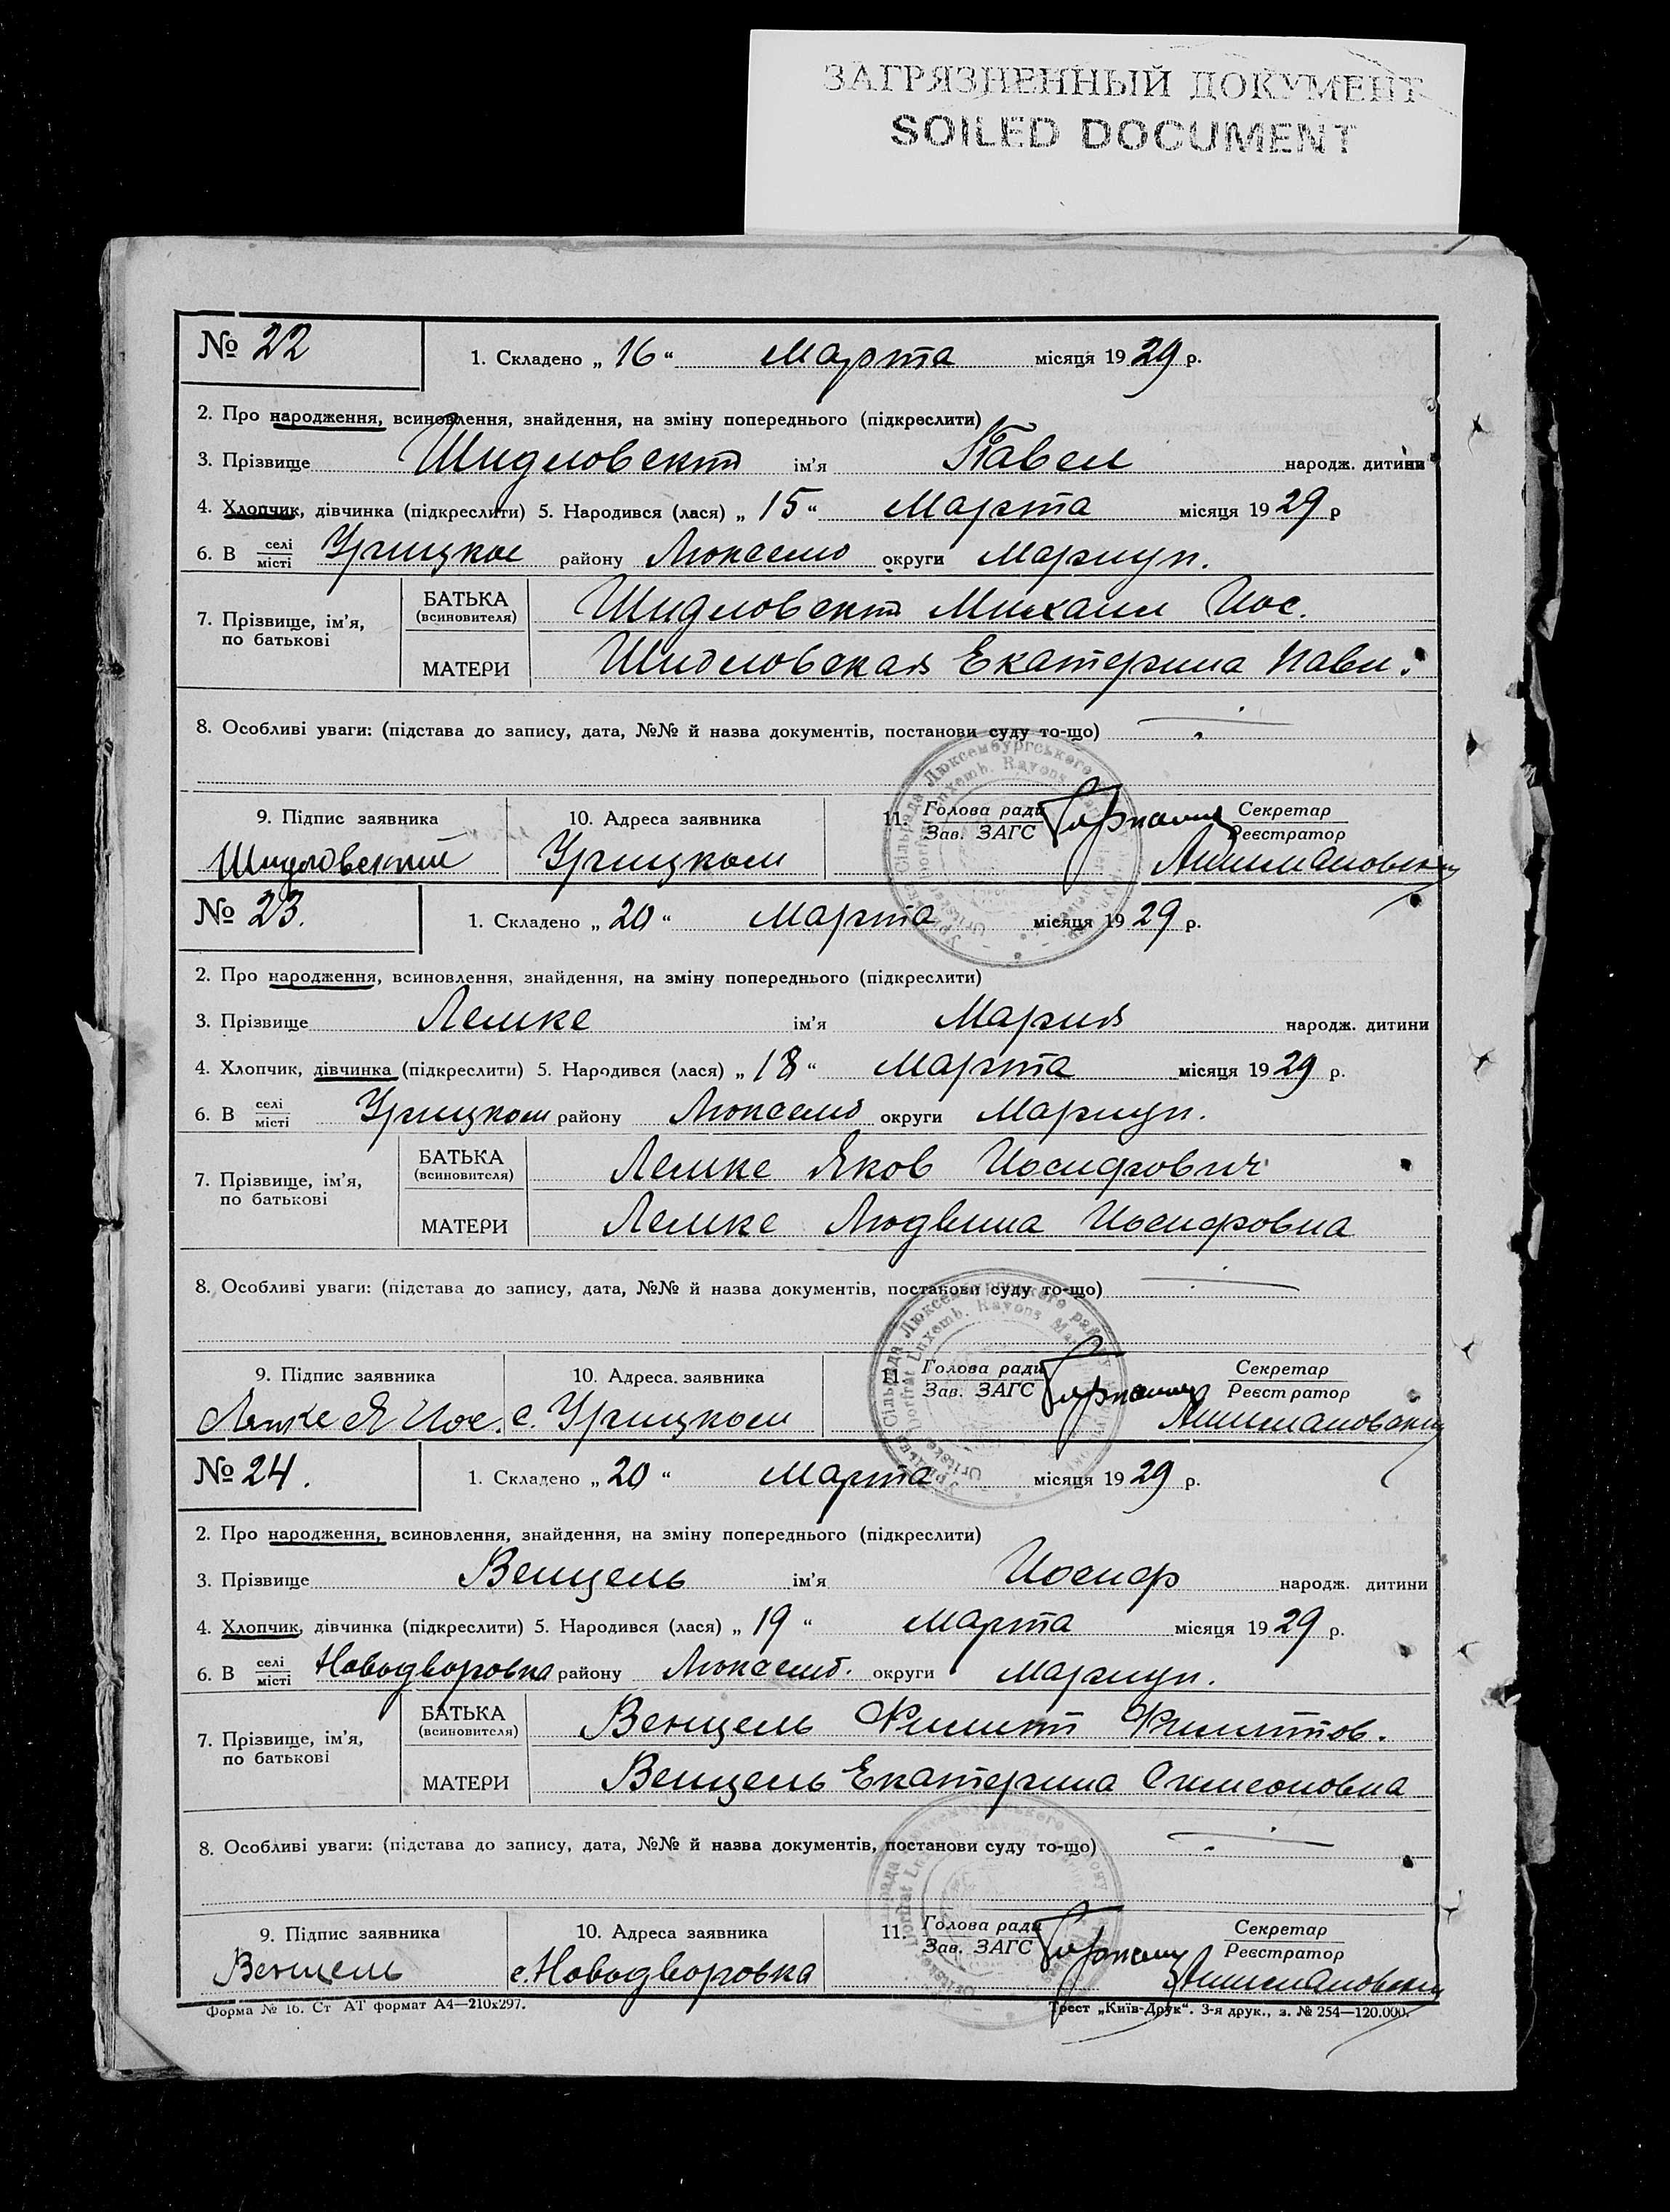 ЗАГРЯЗНЕННЫЙ ДОКУМЕНТ
SOILED DOCUMENT
№ 22
1. Складено „ 16 “ Марта місяця 1929 р.
2. Про народження, всиновлення, знайдення, на зміну попереднього (підкреслити)
3. Прізвище Шидловский ім'я Павел народж. дитини
4. Хлопчик, дівчинка (підкреслити) 5. Народився (лася) „ 15 “ Марта місяця 1929 р
6. В селі/місті Урицкое району Люксемб округи Мариуп.
7. Прізвище, ім'я, по батькові
БАТЬКА (всиновителя) Шидловский Михаил Иос.
МАТЕРИ Шидловская Екатерина Павл.
8. Особливі уваги: (підстава до запису, дата, №№ й назва документів, постанови суду то-що)
9. Підпис заявника 10. Адреса заявника 11. Голова ради/Зав. ЗАГС Секретар/Реєстратор
Шидловский Урицком
№ 23.
1. Складено „ 20 “ Марта місяця 1929 р.
2. Про народження, всиновлення, знайдення, на зміну попереднього (підкреслити)
3. Прізвище Лемке ім'я Мария народж. дитини
4. Хлопчик, дівчинка (підкреслити) 5. Народився (лася) „ 18 “ Марта місяця 1929 р.
6. В селі/місті Урицком району Люксемб округи Мариуп.
7. Прізвище, ім'я, по батькові
БАТЬКА (всиновителя) Лемке Яков Иосифович
МАТЕРИ Лемке Людвина Иосифовна
8. Особливі уваги: (підстава до запису, дата, №№ й назва документів, постанови суду то-що)
9. Підпис заявника 10. Адреса заявника 11. Голова ради/Зав. ЗАГС Секретар/Реєстратор
Лемке Я Иос. с. Урицком
№ 24.
1. Складено „ 20 “ Марта місяця 1929 р.
2. Про народження, всиновлення, знайдення, на зміну попереднього (підкреслити)
3. Прізвище Венцель ім'я Иосиф народж. дитини
4. Хлопчик, дівчинка (підкреслити) 5. Народився (лася) „ 19 “ Марта місяця 1929 р.
6. В селі/місті Новодворовка району Люксемб. округи Мариуп.
7. Прізвище, ім'я, по батькові
БАТЬКА (всиновителя) Венцель Филипп Филиппов.
МАТЕРИ Венцель Екатерина Симеоновна
8. Особливі уваги: (підстава до запису, дата, №№ й назва документів, постанови суду то-що)
9. Підпис заявника 10. Адреса заявника 11. Голова ради/Зав. ЗАГС Секретар/Реєстратор
Венцель с. Новодворовка
Форма № 16. Ст АТ формат А4—210х297. Трест „Київ-Друк“. 3-я друк., з. № 254—120.000.